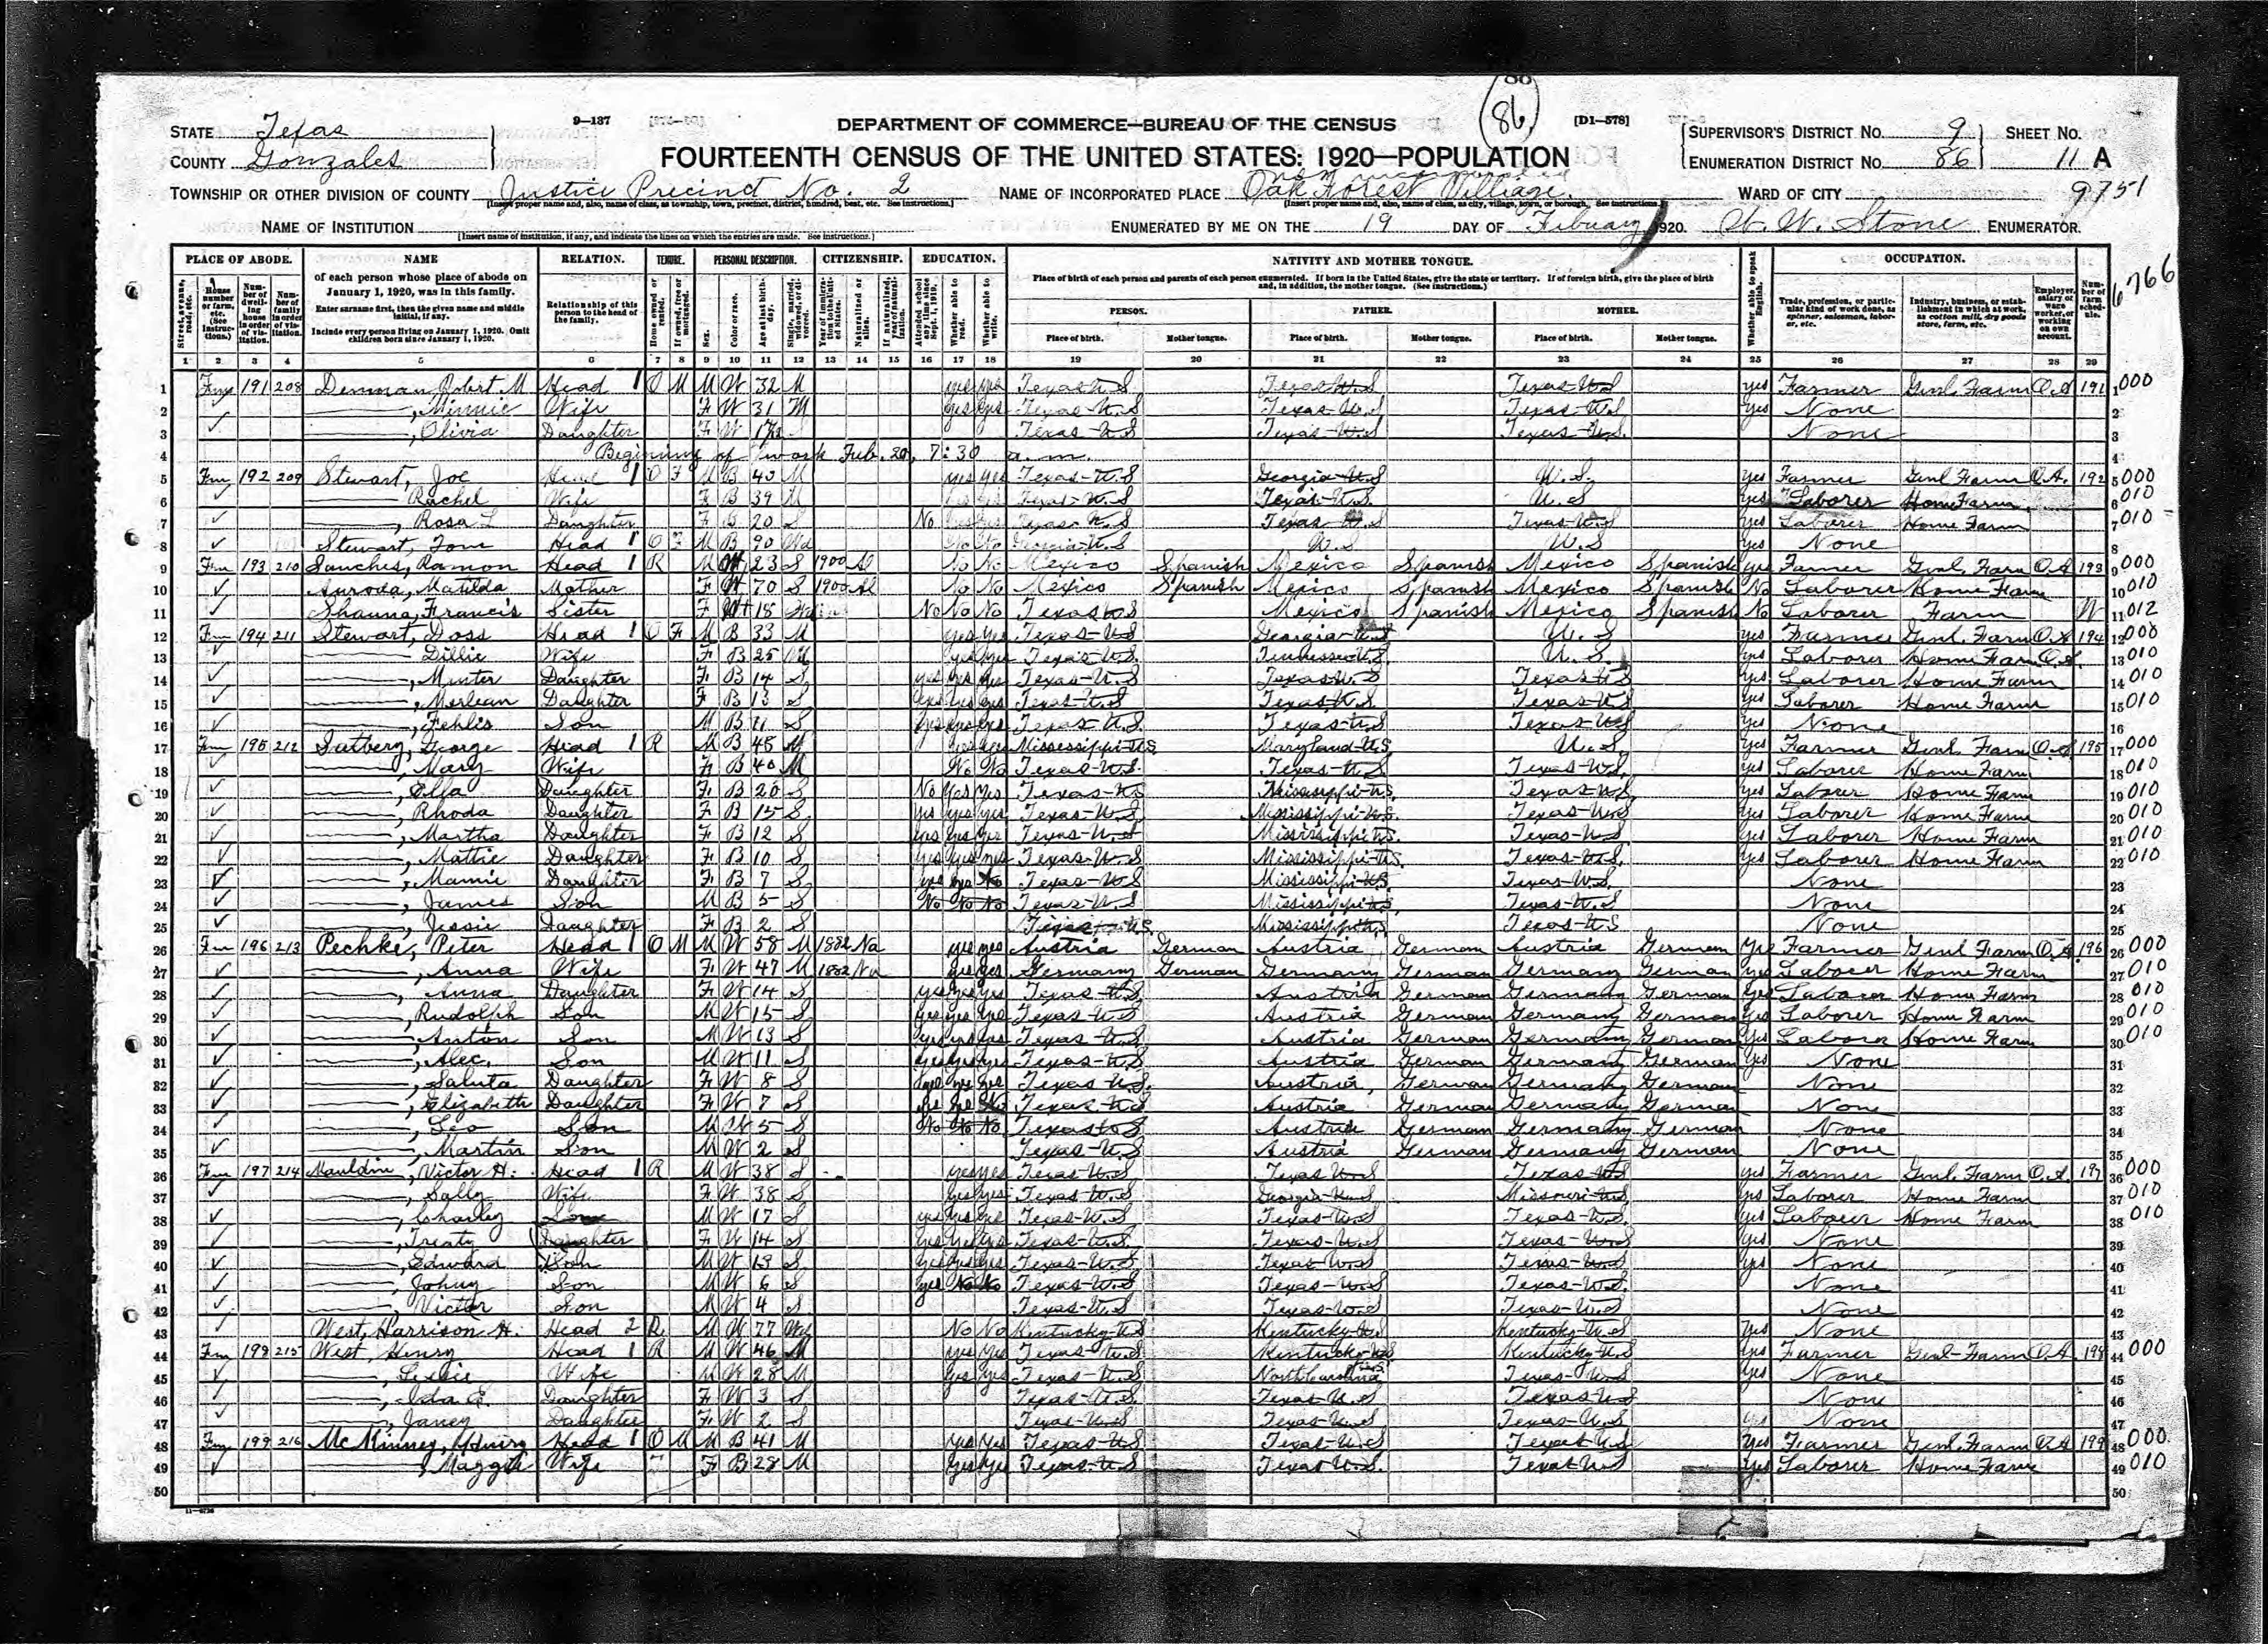 86
STATE Texas
COUNTY Gonzales
9-137
DEPARTMENT OF COMMERCE—BUREAU OF THE CENSUS
[D1-578]
FOURTEENTH CENSUS OF THE UNITED STATES: 1920—POPULATION
SUPERVISOR'S DISTRICT NO. 9 SHEET NO.
ENUMERATION DISTRICT NO. 86 11 A
TOWNSHIP OR OTHER DIVISION OF COUNTY Justice Precinct No. 2
NAME OF INCORPORATED PLACE Oak Forest Village
WARD OF CITY
9751
NAME OF INSTITUTION
[Insert name of institution, if any, and indicate the lines on which the entries are made. See instructions.]
ENUMERATED BY ME ON THE 19 DAY OF February 1920. W. Stone ENUMERATOR.
6766
PLACE OF ABODE. NAME RELATION. TENURE. PERSONAL DESCRIPTION. CITIZENSHIP. EDUCATION. NATIVITY AND MOTHER TONGUE. OCCUPATION.
of each person whose place of abode on January 1, 1920, was in this family.
Enter surname first, then the given name and middle initial, if any.
Include every person living on January 1, 1920. Omit children born since January 1, 1920.
Relationship of this person to the head of the family.
Place of birth of each person and parents of each person enumerated. If born in the United States, give the state or territory. If of foreign birth, give the place of birth and, in addition, the mother tongue. (See instructions.)
PERSON. FATHER. MOTHER.
Place of birth. Mother tongue. Place of birth. Mother tongue. Place of birth. Mother tongue.
1 2 3 4 5 6 7 8 9 10 11 12 13 14 15 16 17 18 19 20 21 22 23 24 25 26 27 28 29
1 Fm 191 208 Denman, Robert M Head 1 O M M W 32 M yes yes Texas U.S Texas U.S Texas U.S yes Farmer Genl. Farm O.A 191 1 000
2 Minnie Wife F W 31 M yes yes Texas U.S Texas U.S Texas U.S yes None 2
3 Olivia Daughter F W Texas U.S Texas U.S Texas U.S. None 3
4 Beginning of work Feb. 20, 7:30 a.m. 4
5 Fm 192 209 Stewart, Joe Head 1 O F M B 40 M yes yes Texas U.S Georgia U.S U.S. yes Farmer Genl Farm O.A. 192 5 000
6 Rachel Wife F B 39 M Texas U.S Texas U.S U.S yes Laborer Home Farm 6 010
7 Rosa L Daughter F B 20 S No Texas U.S Texas U.S Texas U.S yes Laborer Home Farm 7 010
8 Stewart, Tom Head 1 O F M B 90 Wd No No Georgia U.S U.S U.S yes None 8
9 Fm 193 210 Sanches, Ramon Head 1 R M 23 S 1900 Al No No Mexico Spanish Mexico Spanish Mexico Spanish yes Farmer Genl. Farm O.A 193 9 000
10 Matilda Mother F 70 S 1900 Al No No Mexico Spanish Mexico Spanish Mexico Spanish No Laborer Home Farm 10 010
11 Francis Sister F 18 No No No Texas U.S Mexico Spanish Mexico Spanish No Laborer Farm W 11 012
12 Fm 194 211 Stewart, Doss Head 1 O F M B 33 M yes yes Texas U.S Georgia U.S U.S yes Farmer Genl. Farm O.A 194 12 000
13 Dillie Wife F B 25 yes yes Texas U.S. Tennessee U.S. U.S. yes Laborer Home Farm 13 010
14 Minter Daughter F B 14 S yes yes yes Texas U.S Texas U.S Texas U.S yes Laborer Home Farm 14 010
15 Merlean Daughter F B 13 S yes yes yes Texas U.S Texas U.S Texas U.S yes Laborer Home Farm 15 010
16 Son M B 11 S yes yes yes Texas U.S. Texas U.S Texas U.S yes None 16
17 Fm 195 212 George Head 1 R M B 45 M yes yes Mississippi U.S. Maryland U.S U.S. yes Farmer Genl. Farm O.A 195 17 000
18 Mary Wife F B 40 M No No Texas U.S. Texas U.S Texas U.S. yes Laborer Home Farm 18 010
19 Ella Daughter F B 20 S No yes yes Texas U.S Mississippi U.S. Texas U.S yes Laborer Home Farm 19 010
20 Rhoda Daughter F B 15 S yes yes yes Texas U.S. Mississippi U.S. Texas U.S yes Laborer Home Farm 20 010
21 Martha Daughter F B 12 S yes yes yes Texas U.S Mississippi U.S. Texas U.S yes Laborer Home Farm 21 010
22 Mattie Daughter F B 10 S yes yes yes Texas U.S Mississippi U.S. Texas U.S. yes Laborer Home Farm 22 010
23 Mamie Daughter F B 7 S yes yes No Texas U.S Mississippi U.S. Texas U.S. None 23
24 James Son M B 5 S No No No Texas U.S Mississippi U.S. Texas U.S None 24
25 Jessie Daughter F B 2 S Texas U.S. Mississippi U.S. Texas U.S None 25
26 Fm 196 213 Pechke, Peter Head 1 O M M W 58 M 1882 Na yes yes Austria German Austria German Austria German yes Farmer Genl Farm O.A. 196 26 000
27 Anna Wife F W 47 M 1882 Na yes yes Germany German Germany German Germany German yes Laborer Home Farm 27 010
28 Anna Daughter F W 14 S yes yes yes Texas U.S. Austria German Germany German yes Laborer Home Farm 28 010
29 Rudolph Son M W 15 S yes yes yes Texas U.S Austria German Germany German yes Laborer Home Farm 29 010
30 Anton Son M W 13 S yes yes yes Texas U.S Austria German Germany German yes Laborer Home Farm 30 010
31 Alec. Son M W 11 S yes yes yes Texas U.S Austria German Germany German yes None 31
32 Saluta Daughter F W 8 S Texas U.S. Austria German Germany German None 32
33 Elizabeth Daughter F W 7 S Texas U.S Austria German Germany German None 33
34 Leo Son M W 5 S No No No Texas U.S Austria German Germany German None 34
35 Martin Son M W 2 S Texas U.S Austria German Germany German None 35
36 Fm 197 214 Mauldin, Victor H. Head 1 R M W 38 S yes yes Texas U.S Texas U.S Texas U.S yes Farmer Genl. Farm O.A. 197 36 000
37 Sally Wife F W 38 S yes yes Texas U.S Georgia U.S Missouri U.S yes Laborer Home Farm 37 010
38 Charley Son M W 17 S yes yes yes Texas U.S Texas U.S Texas U.S. yes Laborer Home Farm 38 010
39 Treaty Daughter F W 14 S yes yes yes Texas U.S Texas U.S Texas U.S yes None 39
40 Edward Son M W 13 S yes yes yes Texas U.S Texas U.S Texas U.S yes None 40
41 Johny Son M W 6 S yes No No Texas U.S Texas U.S Texas U.S. None 41
42 Victor Son M W 4 S Texas U.S Texas U.S Texas U.S None 42
43 West, Harrison H. Head 2 R M W 77 Wd No No Kentucky U.S Kentucky U.S Kentucky U.S yes None 43
44 Fm 198 215 West, Henry Head 1 R M W 46 M yes yes Texas U.S Kentucky U.S Kentucky U.S yes Farmer Genl Farm O.A. 198 44 000
45 Wife W 28 M yes yes Texas U.S North Carolina Texas U.S yes None 45
46 Ida E. Daughter F W 3 S Texas U.S Texas U.S Texas U.S None 46
47 Janey Daughter F W 2 S Texas U.S Texas U.S Texas U.S None 47
48 Fm 199 216 McKinney, Henry Head 1 O M M B 41 M yes yes Texas U.S Texas U.S Texas U.S yes Farmer Genl. Farm O.A 199 48 000
49 Maggie Wife F B 28 M yes yes Texas U.S Texas U.S. Texas U.S yes Laborer Home Farm 49 010
50 50